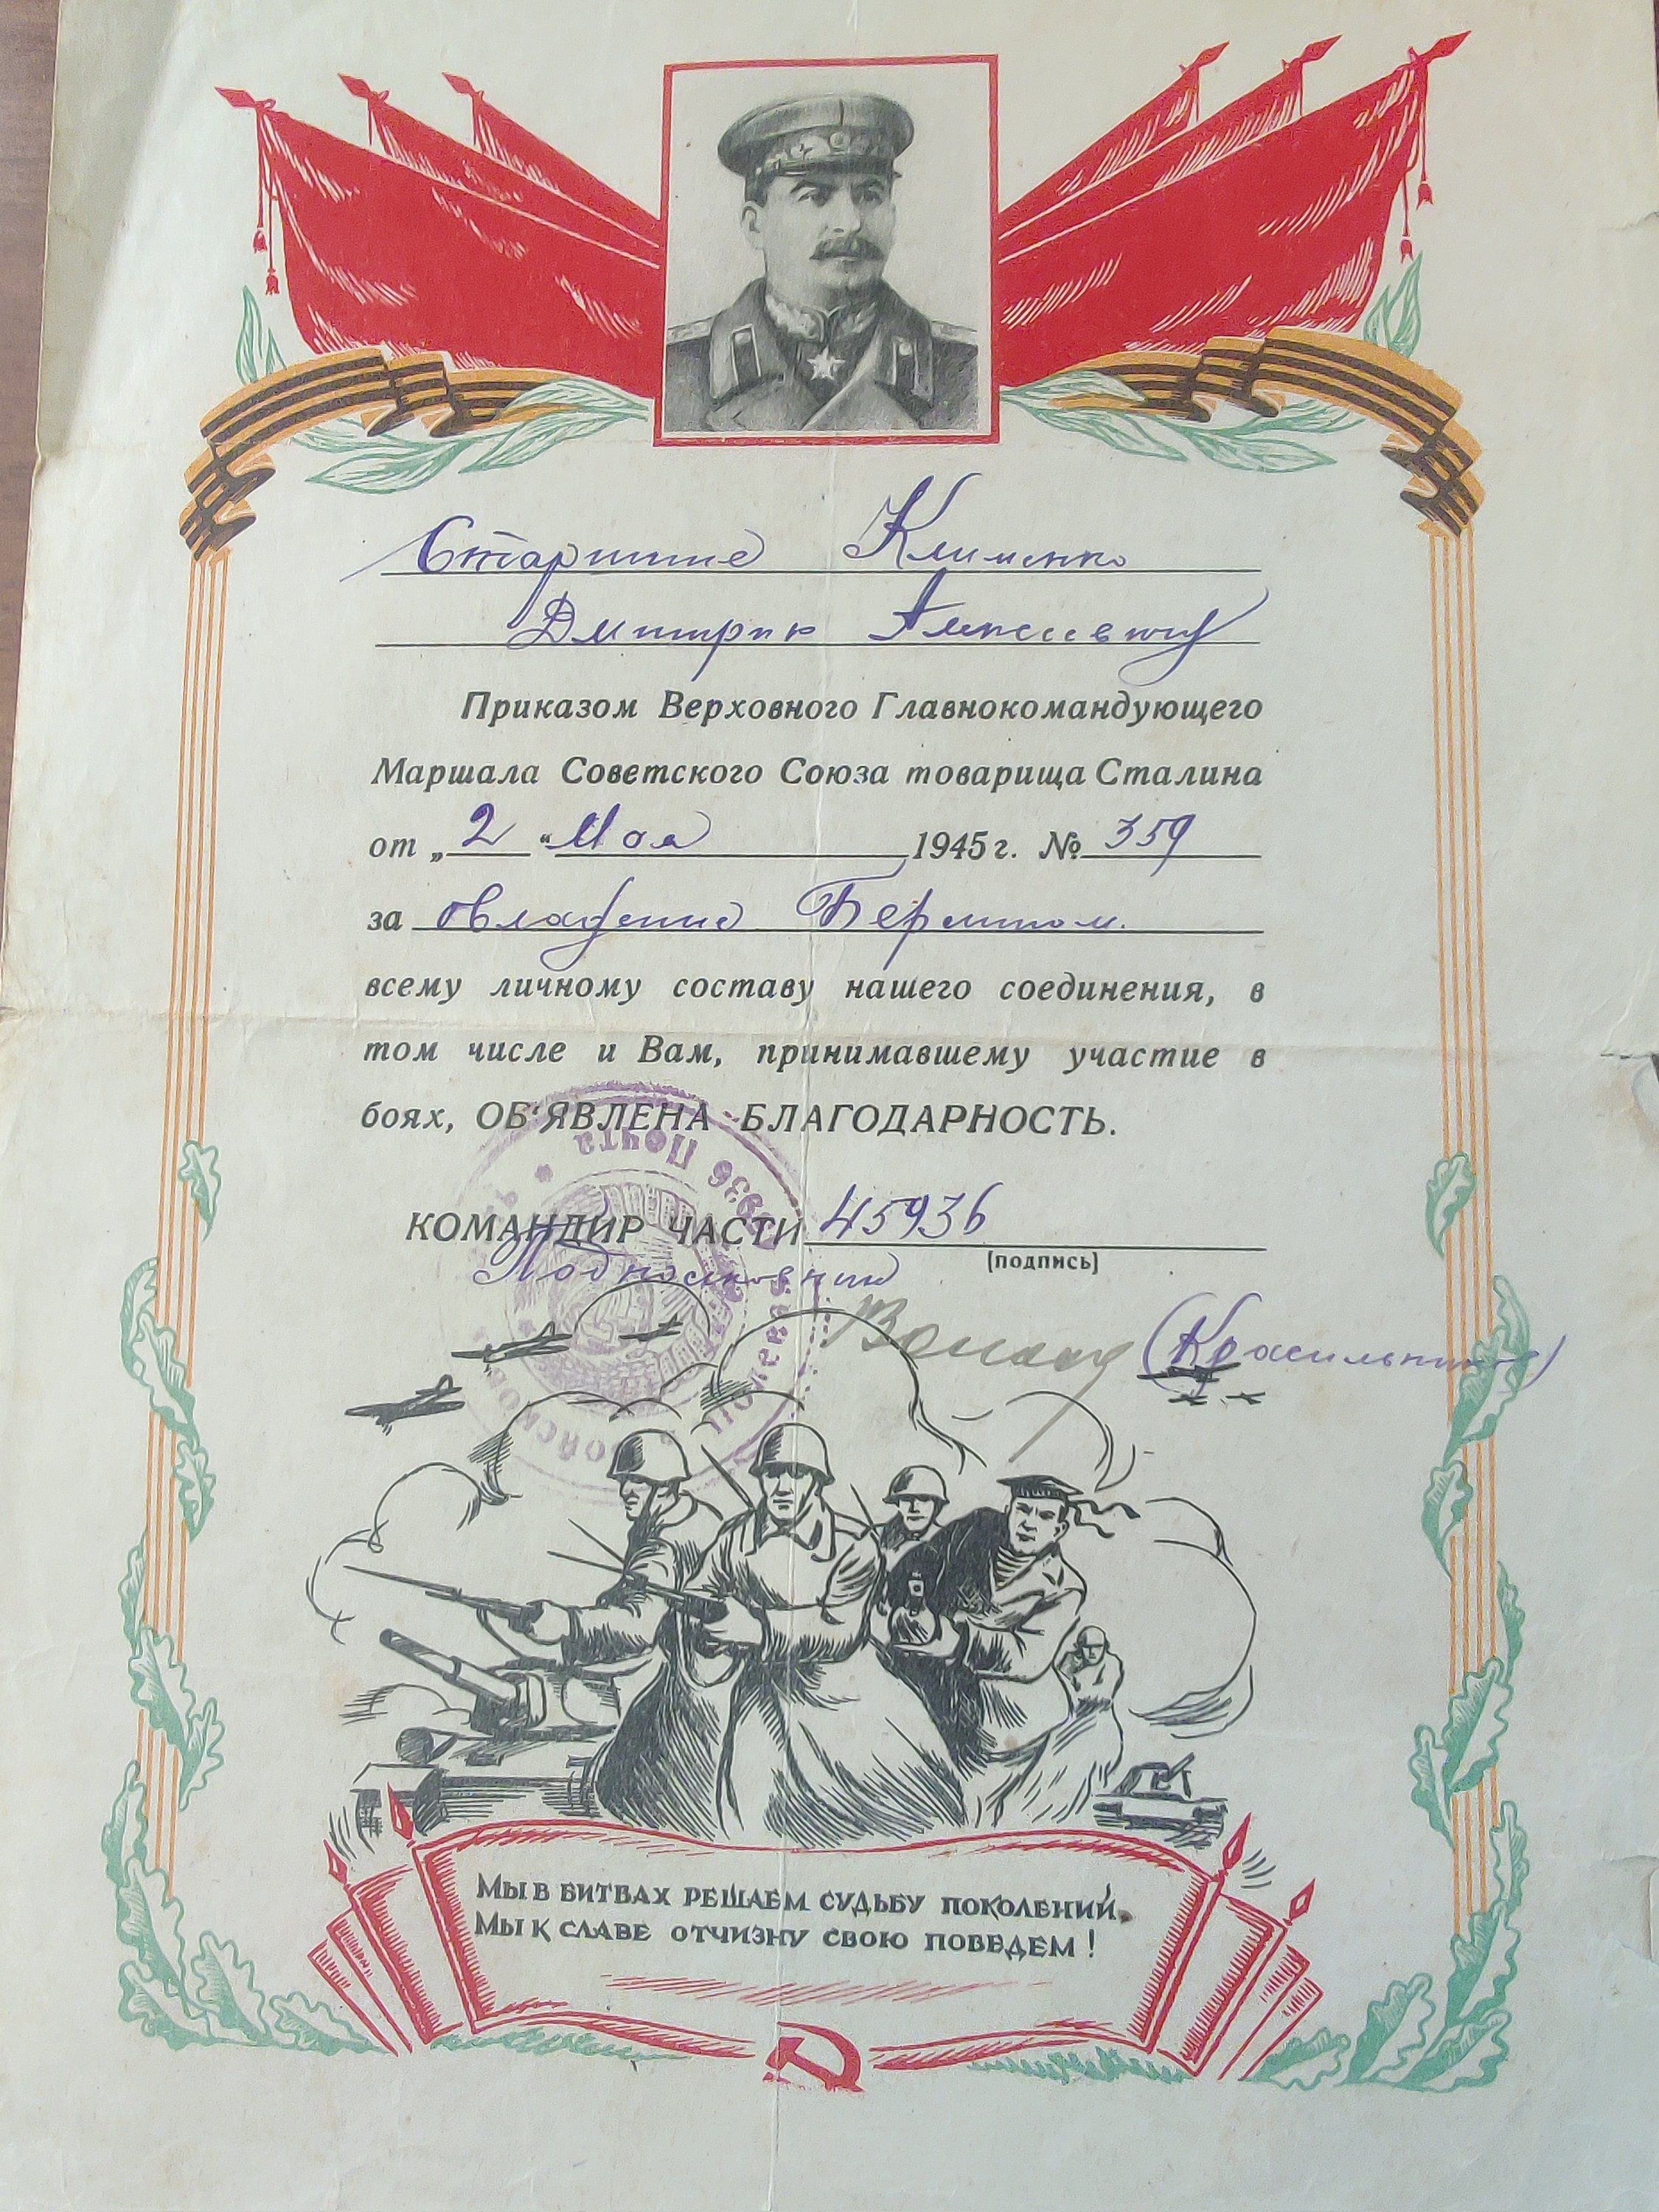 Старшине Клименко
Дмитрию Алексеевичу
Приказом Верховного Главнокомандующего
Маршала Советского Союза товарища Сталина
от „2 “ Мая 1945 г. № 359
за овладение Берлином.
всему личному составу нашего соединения, в
том числе и Вам, принимавшему участие в
боях, ОБ‘ЯВЛЕНА БЛАГОДАРНОСТЬ.
КОМАНДИР ЧАСТИ 45936
(подпись)
Подполковник
(Красильников)
Полевая Почта
Мы в битвах решаем судьбу поколений,
Мы к славе отчизну свою поведем!